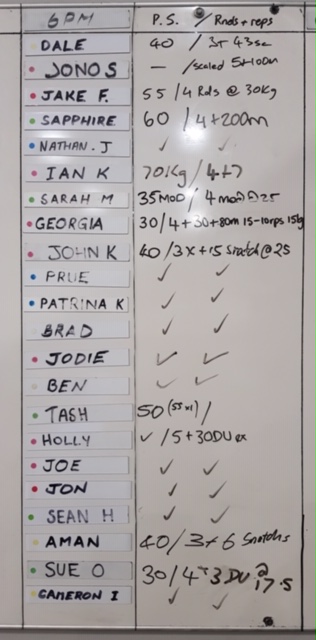 6PM P.S. / Rnds + reps
DALE 40 / 3r 43se
JONO S — / scaled 5+100m
JAKE F. 55 / 4 Rds @ 30kg
SAPPHIRE 60 / 4+200m
NATHAN. J ✓ ✓
IAN K 70kg / 4+7
SARAH M 35MOD / 4 mod @25
GEORGIA 30/4+30+80m 15-10rps 15kg
JOHN K 40 / 3 x +15 Snatch @ 25
PRUE ✓ ✓
PATRINA K ✓ ✓
BRAD ✓ ✓
JODIE ✓ ✓
BEN ✓ ✓
TASH 50 (55x1) /
HOLLY ✓ / 5+30DU ex
JOE ✓ ✓
JON ✓ ✓
SEAN H ✓ ✓
AMAN 40/3+6 Snatchs
SUE O 30/4+3 DU @ 17.5
CAMERON I ✓ ✓